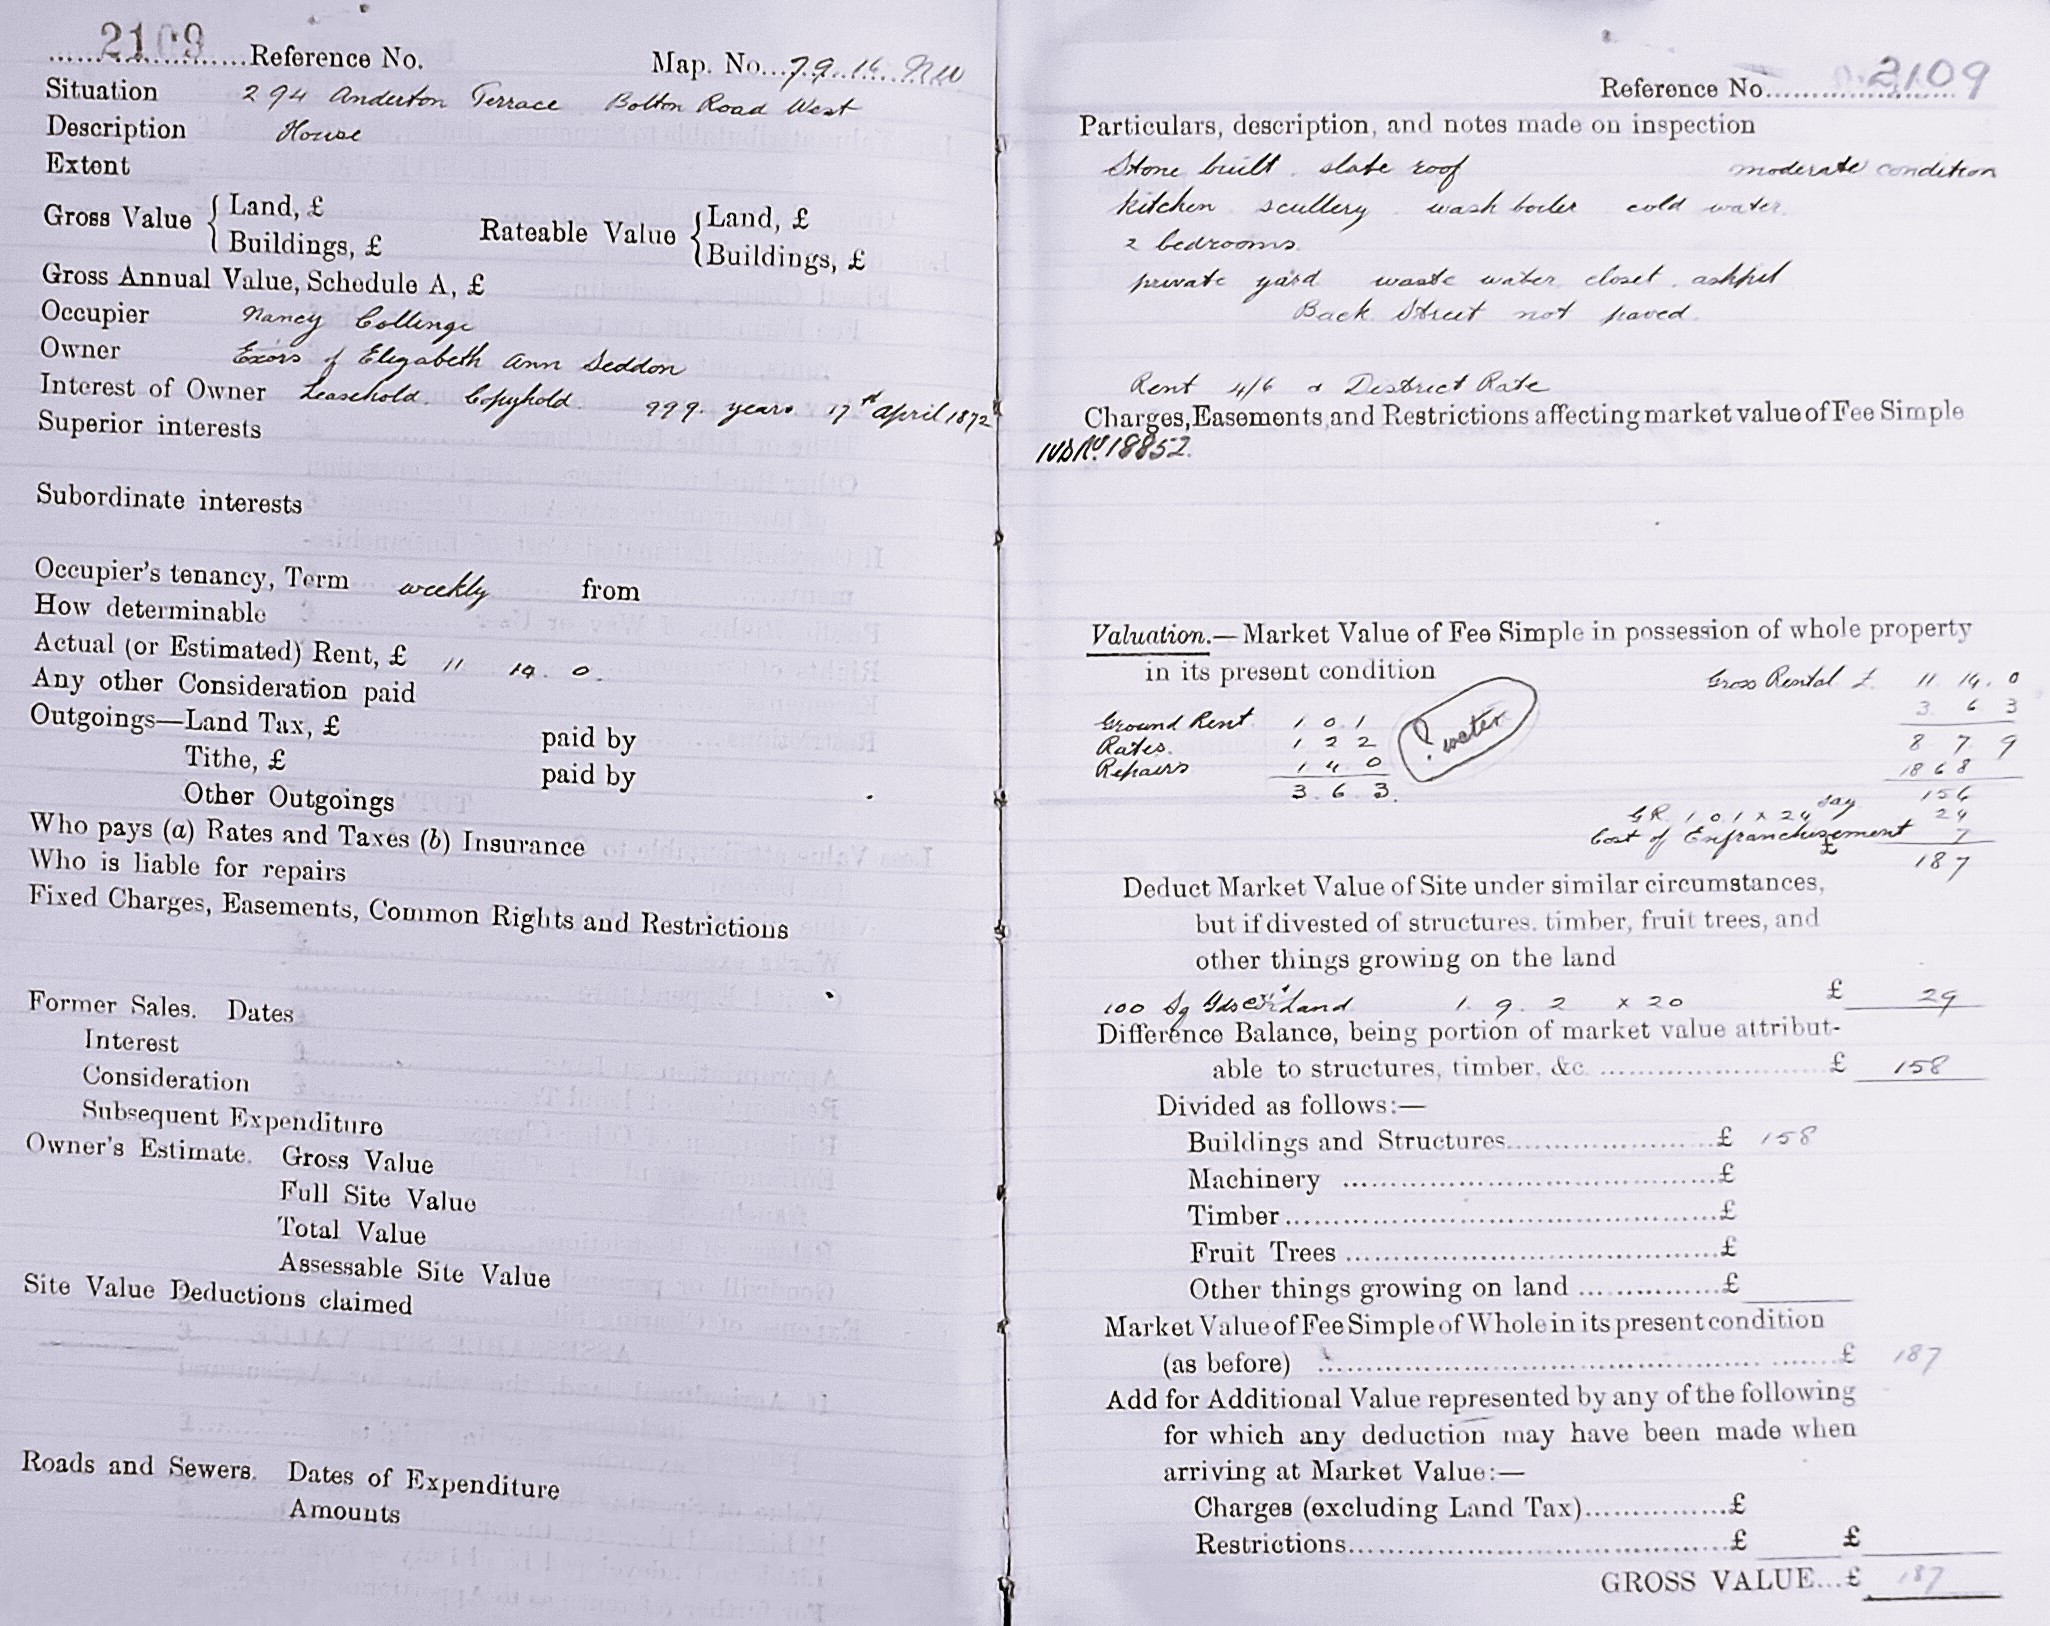 2109 Reference No. Map. No...79.14.NW
Situation 294 Anderton Terrace Bolton Road West
Description House
Extent
Gross Value { Land, £ Buildings, £ Rateable Value { Land, £ Buildings, £
Gross Annual Value, Schedule A, £
Occupier Nancy Collinge
Owner Exors of Elizabeth Ann Seddon
Interest of Owner Leasehold. Copyhold. 999. years. 17th April 1872
Superior interests
Subordinate interests
Occupier's tenancy, Term weekly from
How determinable
Actual (or Estimated) Rent, £ 11 14. 0.
Any other Consideration paid
Outgoings—Land Tax, £ paid by
Tithe, £ paid by
Other Outgoings
Who pays (a) Rates and Taxes (b) Insurance
Who is liable for repairs
Fixed Charges, Easements, Common Rights and Restrictions
Former Sales. Dates
Interest
Consideration
Subsequent Expenditure
Owner's Estimate. Gross Value
Full Site Value
Total Value
Assessable Site Value
Site Value Deductions claimed
Roads and Sewers. Dates of Expenditure
Amounts
Reference No. 2109
Particulars, description, and notes made on inspection
Stone built. slate roof moderate condition
kitchen. scullery. wash boiler cold water.
2 bedrooms.
private yard. waste water closet. ashpit
Back Street not paved.
Rent 4/6 & District Rate
Charges, Easements, and Restrictions affecting market value of Fee Simple
IVD No. 18852.
Valuation.—Market Value of Fee Simple in possession of whole property
in its present condition
Gross Rental £ 11. 14. 0
Ground Rent 1 0 1 ? water 3 6 3
Rates. 1 2 2 8 7 9
Repairs 1 4 0 18 6 8
3. 6. 3. say 156
G.R. 1 0 1 x 24 24
Cost of Enfranchisement 7
£ 187
Deduct Market Value of Site under similar circumstances,
but if divested of structures, timber, fruit trees, and
other things growing on the land
100 Sq Yds Land 1. 9. 2 x 20 £ 29
Difference Balance, being portion of market value attribut-
able to structures, timber, &c. £ 158
Divided as follows:—
Buildings and Structures £ 158
Machinery £
Timber £
Fruit Trees £
Other things growing on land £
Market Value of Fee Simple of Whole in its present condition
(as before) £ 187
Add for Additional Value represented by any of the following
for which any deduction may have been made when
arriving at Market Value:—
Charges (excluding Land Tax) £
Restrictions £ £
GROSS VALUE...£ 187